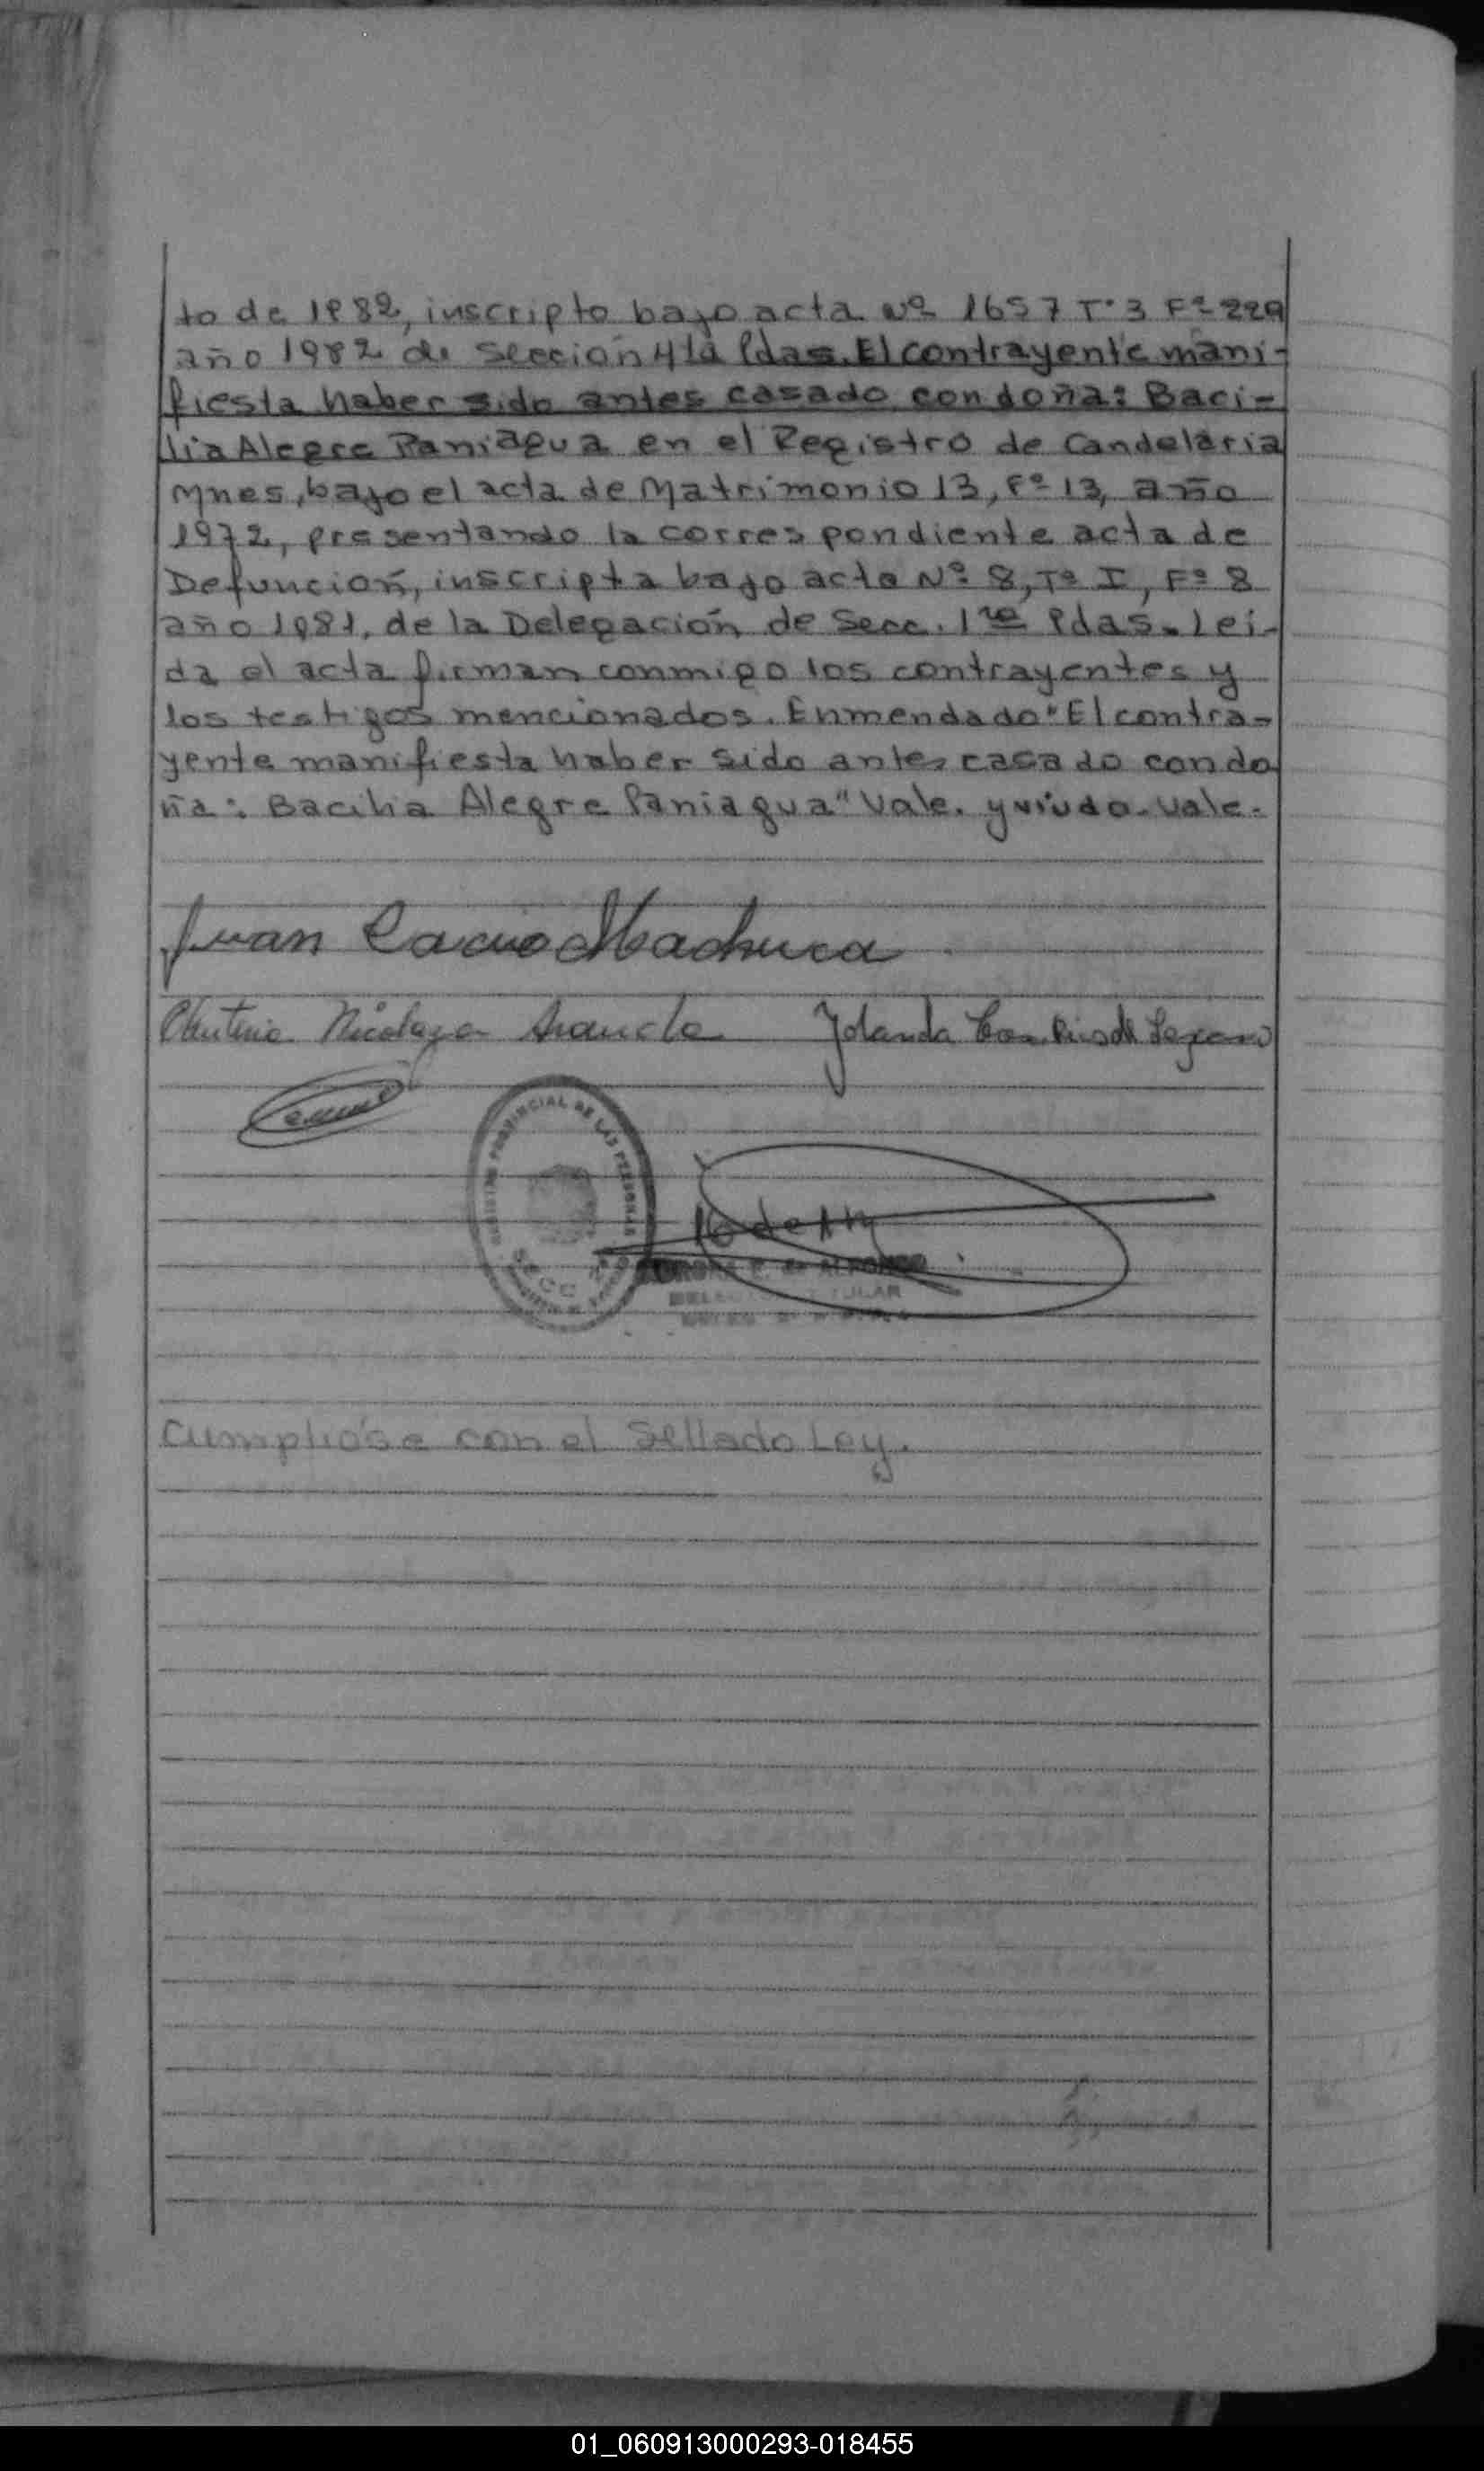 to de 1982, inscripto bajo acta Nº 1657 Tº 3 Fº 229
año 1982 de Sección 4ta Pdas. El contrayente mani-
fiesta haber sido antes casado con doña: Baci-
lia Alegre Paniagua en el Registro de Candelaria
Mnes, bajo el acta de Matrimonio 13, Fº 13, año
1972, presentando la correspondiente acta de
Defunción, inscripta bajo acta Nº 8, Tº I, Fº 8
año 1981, de la Delegación de Secc. 1ra Pdas. Lei-
da el acta firman conmigo los contrayentes y
los testigos mencionados. Enmendado "El contra-
yente manifiesta haber sido antes casado con do
ña: Bacilia Alegre Paniagua" Vale. y viudo. Vale.
Juan Machuca
Nicolaza Yolanda de
REGISTRO PROVINCIAL DE LAS PERSONAS
SECC
de ALFONSO
TITULAR
Cumplióse con el Sellado Ley.
01_060913000293-018455